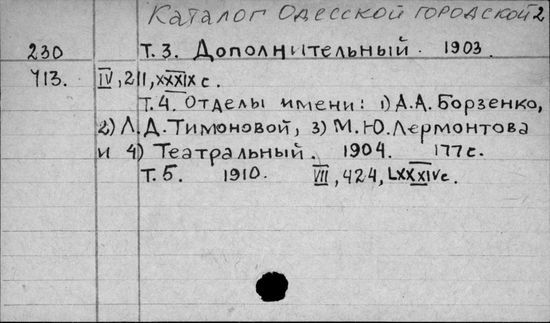 Каталог Одесской городской 2
230 Т. 3. Дополнительный. 1903.
413. IV, 211, XXXIX с.
Т. 4. Отделы имени: 1) А.А. Борзенко,
2) Л.Д. Тимоновой, 3) М.Ю. Лермонтова
и 4) Театральный. 1904. 177 с.
Т. 5. 1910. VII, 424, LXXXIV с.